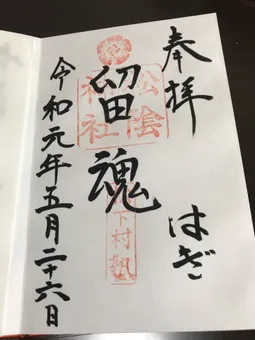 奉拝
はぎ
留魂
松陰
神社
松下村塾
令和元年五月二十六日